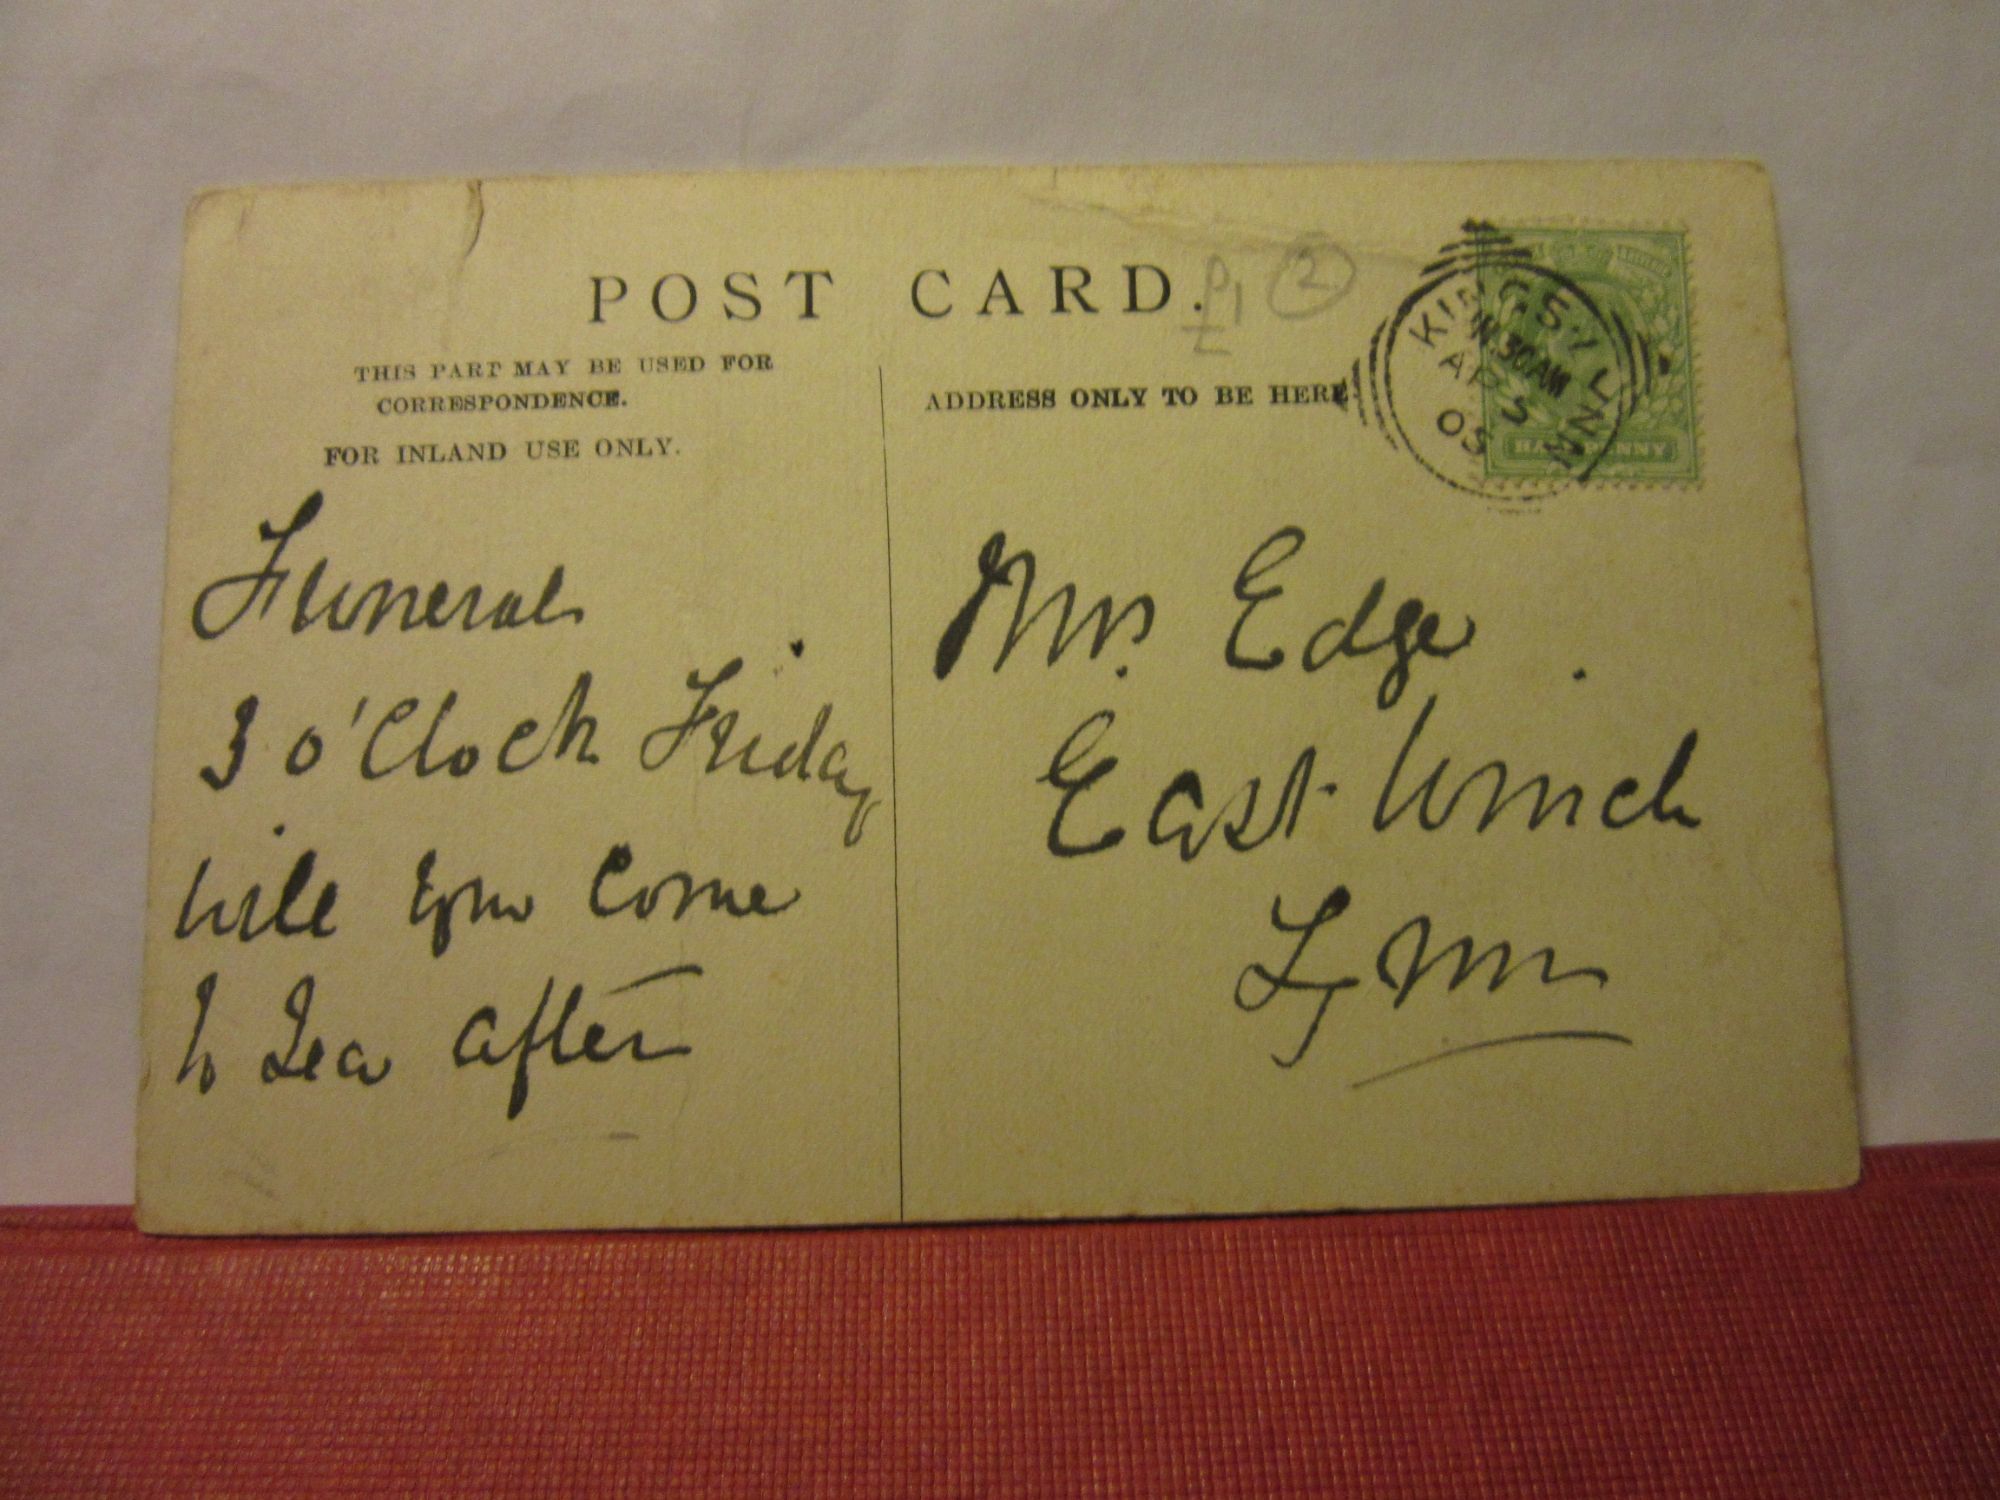 POST CARD.
£1 2
THIS PART MAY BE USED FOR
CORRESPONDENCE.
FOR INLAND USE ONLY.
ADDRESS ONLY TO BE HERE
KING'S LYNN
11.30AM
AP 5
05
HALFPENNY
Funeral
3 o'Clock Friday
will you come
to Tea after
Mrs. Edge
East Winch
Lynn